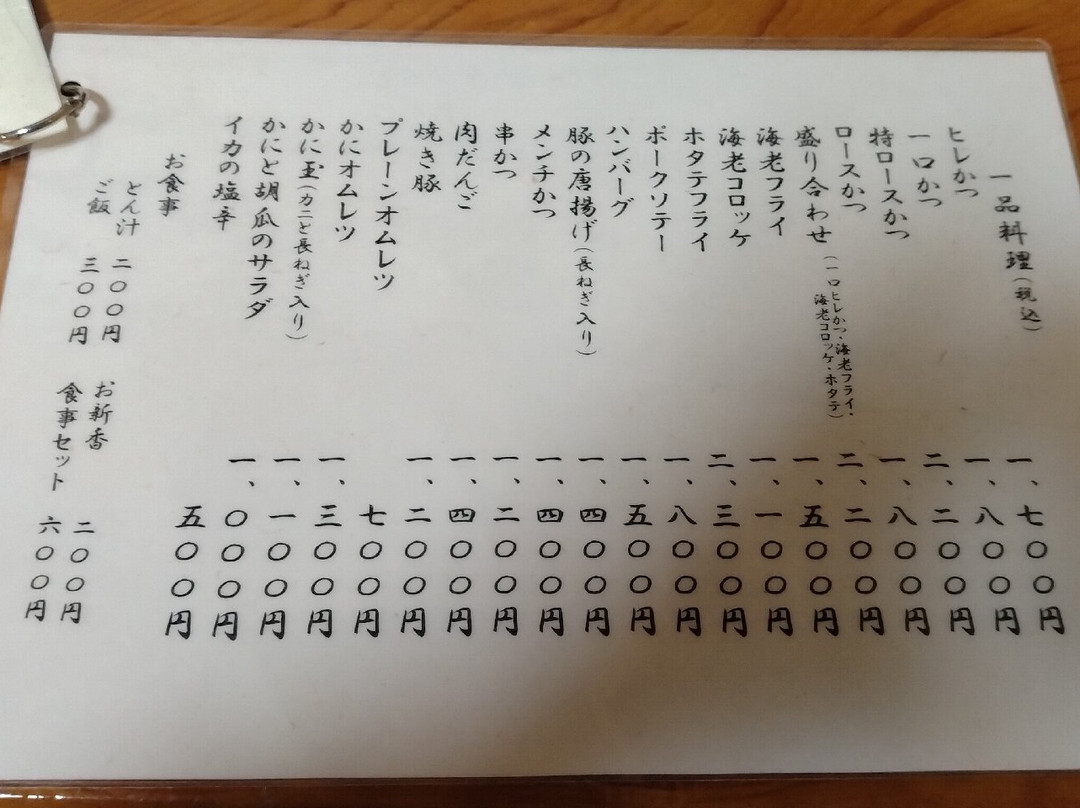 一品料理(税込)
ヒレかつ 一、七〇〇円
一口かつ 一、八〇〇円
特ロースかつ 二、二〇〇円
ロースかつ 一、八〇〇円
盛り合わせ(一口ヒレかつ・海老フライ・海老コロッケ・ホタテ) 二、二〇〇円
海老フライ 一、五〇〇円
海老コロッケ 一、一〇〇円
ホタテフライ 二、三〇〇円
ポークソテー 一、八〇〇円
ハンバーグ 一、五〇〇円
豚の唐揚げ(長ねぎ入り) 一、四〇〇円
メンチかつ 一、四〇〇円
串かつ 一、二〇〇円
肉だんご 一、四〇〇円
焼き豚 一、二〇〇円
プレーンオムレツ 七〇〇円
かにオムレツ 一、三〇〇円
かに玉(カニと長ねぎ入り) 一、一〇〇円
かにと胡瓜のサラダ 一、〇〇〇円
イカの塩辛 五〇〇円
お食事
とん汁 二〇〇円 お新香 二〇〇円
ご飯 三〇〇円 食事セット 六〇〇円